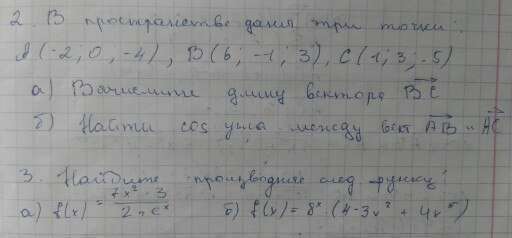 2. В пространстве даны три точки:
A(-2; 0, -4), B(6; -1; 3), C(1; 3; -5)
а) Вычислить длину вектора BC
б) Найти cos угла между вект. AB и AC
3. Найдите производные след функц:
а) f(x) = 7x² · 3 / 2 + eˣ б) f(x) = 8ˣ · (4 - 3x² + 4x⁵)